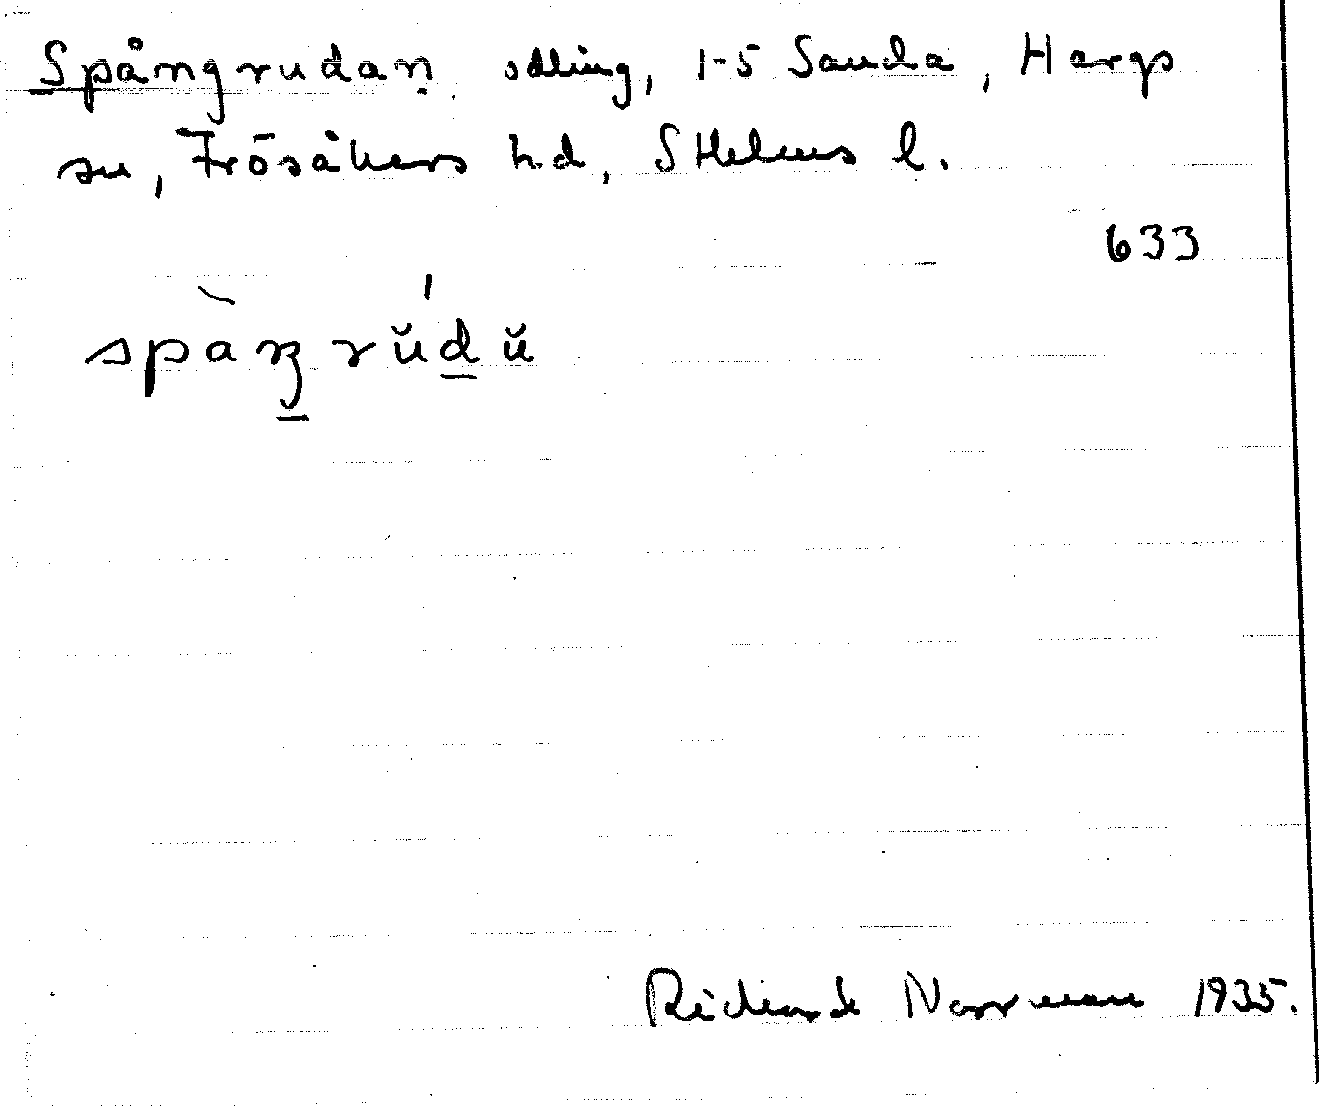 Spångrudaṇ odling, 1-5 Sanda, Hargs
sn, Frösåkers hd, SHelms l.
633
spàŋ̱ rŭḏŭ
Richard Norrman 1935.